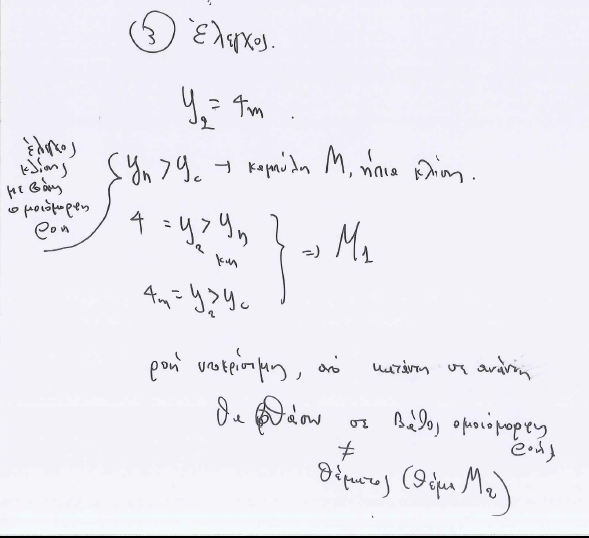 ③ έλεγχος.
y₂ = 4m .
έλεγχος
κλίσης
με βάση
ομοιόμορφη
ροή
yₙ > y_c → καμπύλη M, ήπια κλίση.
4 = y₂ > yₙ
και
4m = y₂ > y_c
} ⇒ M₁
ροή υποκρίσιμη, από κατάντη σε ανάντη
θα φθάσω σε βάθος ομοιόμορφης
ροής
≠
θέματος (θέμα M₂)